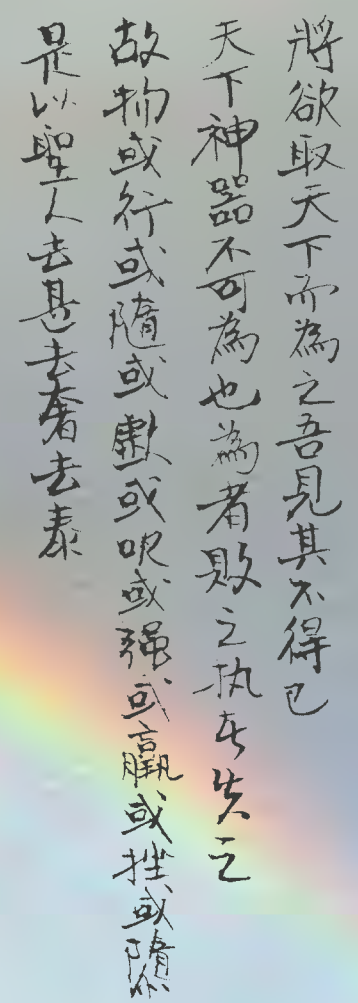 將欲取天下而為之吾見其不得已
天下神器不可為也為者敗之执者失之
故物或行或隨或歔或吹或強或羸或挫或隳
是以聖人去甚去奢去泰